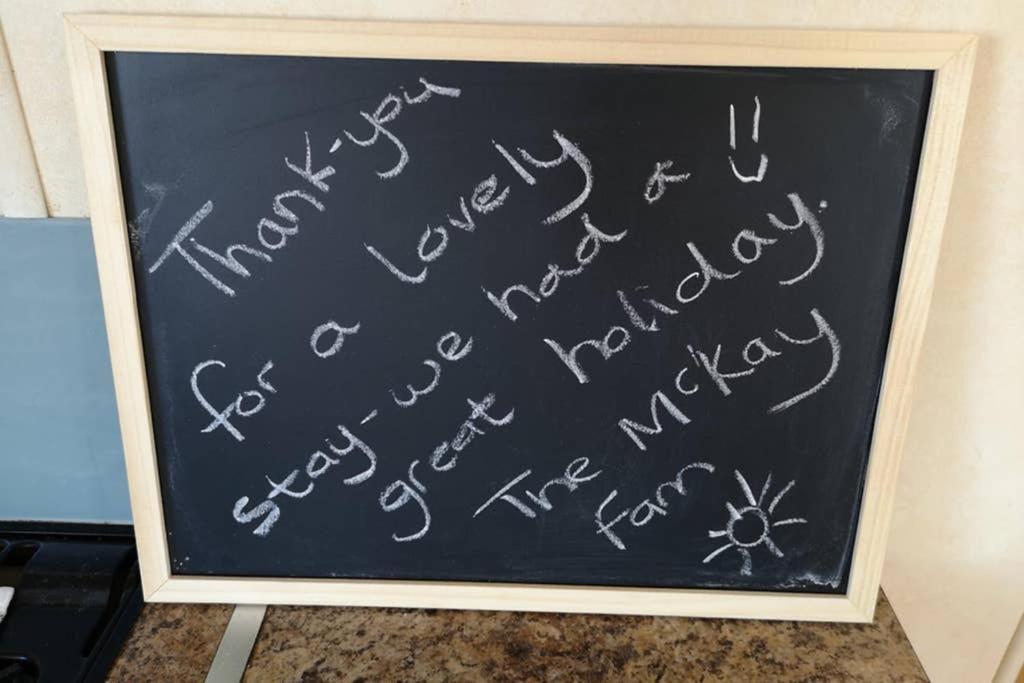 Thank-you
for a lovely
stay-we had a
great holiday.
The McKay
fam